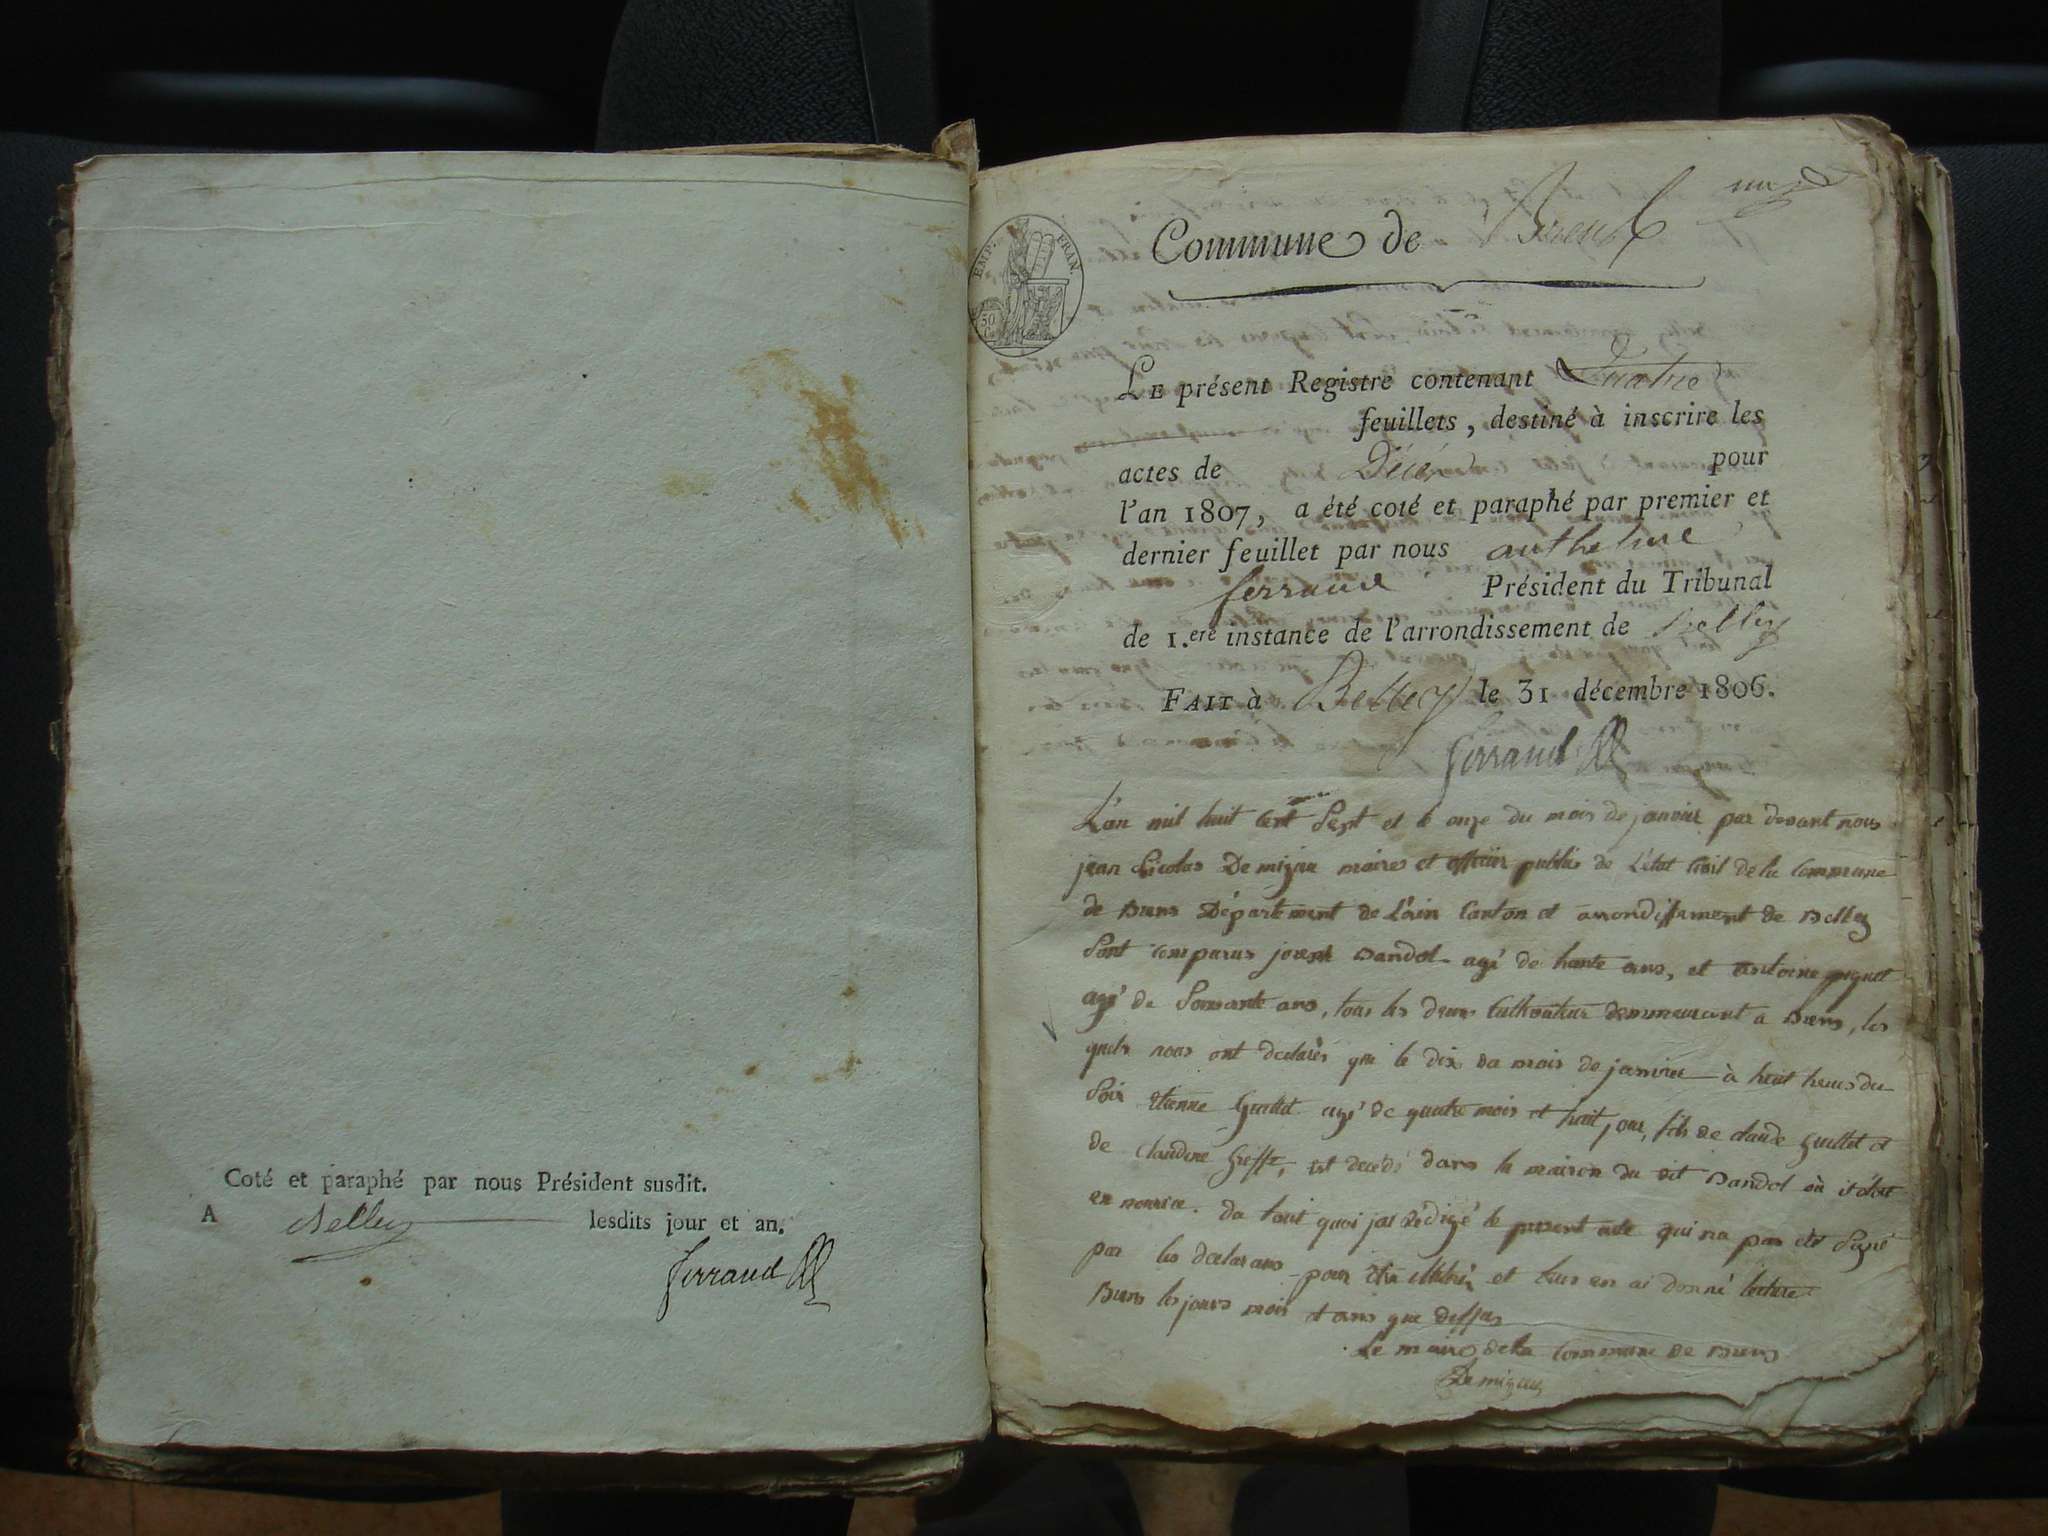 Coté et paraphé par nous Président susdit.
A Belley lesdits jour et an.
ferraud
un
EMP. FRAN.
50
Commune de
LE présent Registre contenant quatre
feuillets, destiné à inscrire les
actes de Décès pour
l'an 1807, a été coté et paraphé par premier et
dernier feuillet par nous anthelme
ferraud Président du Tribunal
de 1.ere instance de l'arrondissement de Belley
FAIT à Belley le 31 décembre 1806.
ferraud
L'an mil huit cent Sept et le onze du mois de janvier par devant nous
jean Nicolas Demigieu maire et officier public de L'état Civil de la Commune
de Département de L'ain Canton et arrondissement de Belley
Sont comparus Dandel agé de trente ans, et antoine
agé de Soixante ans, tous les deux Cultivateur demmeurant a, les
quels nous ont declarés que le dix du mois de janvier à huit heures du
Soir Etienne Guillet agé de quatre mois et huit jour, fils de claude Guillet et
de Claudine, est decedé dans la maison du dit Dandel où il étoit
en nourice. du tout quoi jai rédigé le present acte qui na pas été Signé
par les declarans pour être illitérés et leur en ai donné lecture
les jours mois et ans que dessus
Le maire de la Commune de
Demigieu